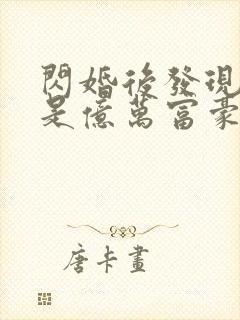 閃婚後發現
是億萬富豪
唐卡畫